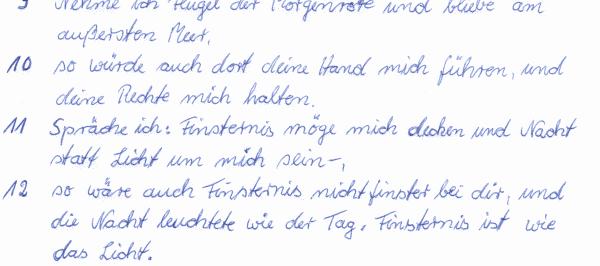 9 Nähme ich Flügel der Morgenröte und bliebe am
äußersten Meer,
10 so würde auch dort deine Hand mich führen, und
deine Rechte mich halten.
11 Spräche ich: Finsternis möge mich decken und Nacht
statt Licht um mich sein-,
12 so wäre auch Finsternis nicht finster bei dir, und
die Nacht leuchtete wie der Tag. Finsternis ist wie
das Licht.